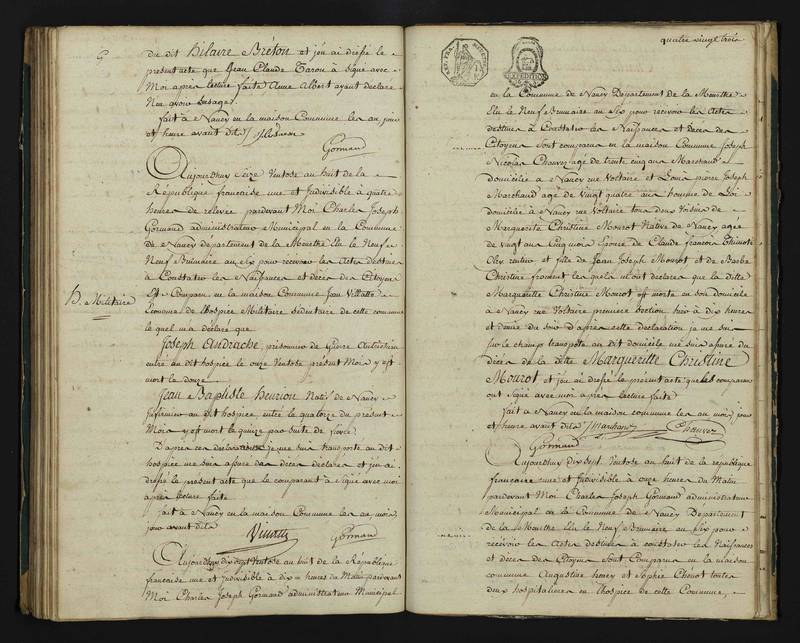 du dit Hilaire Bréton et j'en ai dressé le
present acte que Jean Claude Tarou à Signé avec
Moi après lecture faite Anne Albert ayant declaré
Ne ... usage.
fait à Nancy en la maison Commune les an, jour
et heure avant dits
Gormand
Aujourdhuy Seize Ventose an huit de la
République française une et Indivisible à quatre
heures de relevée pardevant Moi Charles Joseph
Gormand administrateur Municipal en la Commune
de Nancy departement de la Meurthe Elu le Neuf
Brumaire an Six pour recevoir les Actes destinés
à Constater les Naissances et décès des Citoyens
Est Comparu en la maison Commune Jean Villatte
Econome de lhospice Militaire Sédentaire de cette commune
H. Militaire
le quel m'a declaré que
Joseph Andrache, prisonnier de Guerre Autrichien
entré au dit hospice le onze Ventose présent Mois y est
mort le douze
Jean Baptiste henrion Natif de Nancy
infirmier au dit hospice, entré le quatorze du présent
Mois y est mort le quinze par suite de fievre.
D'après ces declarations je me suis transporté au dit
hospice me suis assuré des décès déclarés et j'en ai
dressé le present acte que le comparant à Signé avec moi
après lecture faite
fait à Nancy en la maison Commune les an mois
jour avant dits
Gormand
Aujourdhuy dix sept Ventose an huit de la République
francaise une et indivisible à dix heures du Matin pardevant
Moi Charles Joseph Gormand administrateur Municipal
quatre vingt trois
en la Commune de Nancy Departement de la Meurthe
Elu le Neuf Brumaire an Six pour recevoir les Actes
destinés à Constater les Naissances et Décès des
Citoyens Sont comparus en la maison Commune Joseph
Nicolas Chauvez agé de trente cinq ans Marchand
domicilié à Nancy rue Voltaire et Louis pierre Joseph
Marchand agé de Vingt quatre ans homme de Loi
domicilié à Nancy rue Voltaire tous deux Voisins de
Marguerite Christine Mourot Native de Nancy agée
de vingt ans cinq mois Epouse de Claude francois Thimoté
... rentier et fille de Jean Joseph Mourot et de Barbe
Christine froment les quels m'ont declaré que la dite
Marguerite Christine Mourot est morte en son domicile
à Nancy rue Voltaire premiere Section hier à dix heures
et demie du Soir d'après cette declaration je me suis
Sur le champ transporté au dit domicile me suis assuré du
décès de la dite Margueritte Christine
Mourot et j'en ai dressé le present acte que les comparans
ont Signé avec moi après lecture faite
fait à Nancy en la maison commune les an mois, jour
et heure avant dits Marchand Chauvez
Gormand
Aujourdhuy dix Sept Ventose an huit de la république
francaise une et Indivisible à onze heures du Matin
pardevant Moi Charles Joseph Gormand administrateur
Municipal en la Commune de Nancy Departement
de la Meurthe Elu le Neuf Brumaire an Six pour
recevoir les Actes destinés à constater les Naissances
et décès des Citoyens Sont Comparus en la maison
commune Augustine henry et Sophie Chonot toutes
deux hospitalieres en lhospice de cette Commune,